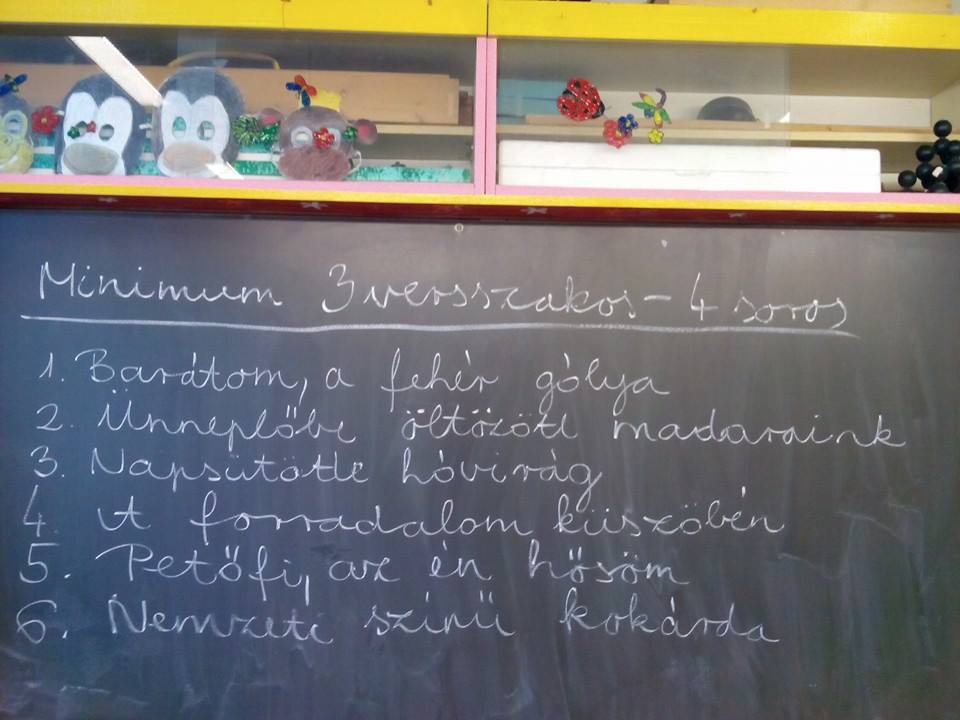 Minimum 3 versszakos - 4 soros
1. Barátom, a fehér gólya
2. Ünneplőbe öltözött madaraink
3. Napsütötte hóvirág
4. A forradalom küszöbén
5. Petőfi, az én hősöm
6. Nemzeti színű kokárda